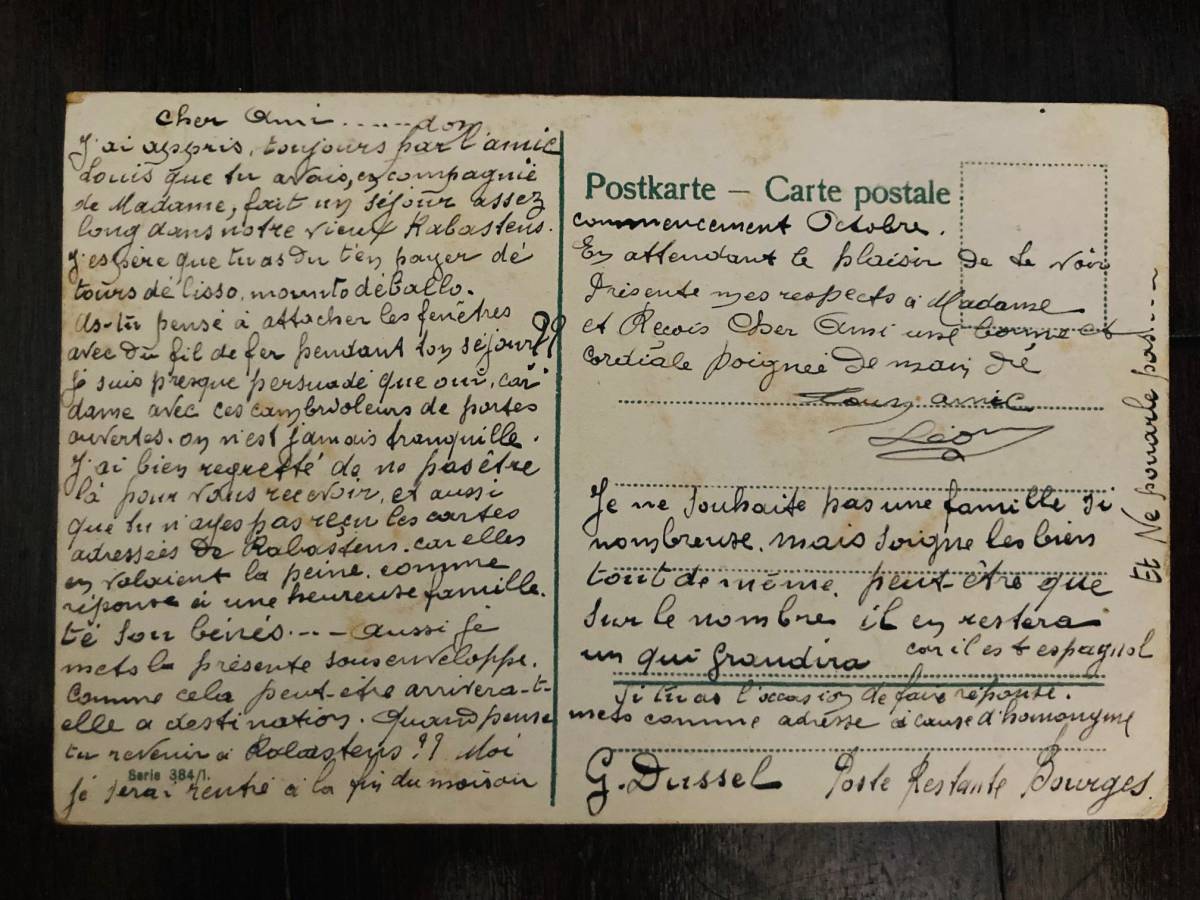 Cher Ami ......don
J'ai appris, toujours par l'amic
Louis que tu avais, en compagnie
de Madame, fait un séjour assez
long dans notre vieux Rabastens.
J'espère que tu as du t'en payer dé
tours de lisso, mounto déballo.
As-tu pensé à attacher les fenêtres
avec du fil de fer pendant ton séjour??
Je suis presque persuadé que oui, car
dame avec ces cambrioleurs de portes
ouvertes. on n'est jamais tranquille.
J'ai bien regretté de ne pas être
là pour vous recevoir, et aussi
que tu n'ayes pas reçu les cartes
adressées de Rabastens. car elles
en valaient la peine. comme
réponse à une heureuse famille.
té soun bénés.... Aussi je
mets la présente sous enveloppe.
Comme cela peut-être arrivera-t-
elle a destination. Quand pense
tu revenir à Rabastens ?? Moi
Serie 384/1.
je serai rentré à la fin du mois ou
Postkarte – Carte postale
commencement Octobre.
En attendant le plaisir de te voir
Présente mes respects à Madame
et Reçois Cher Ami une bonne et
cordiale poignée de main dé
toun amic
Léon
Je ne souhaite pas une famille si
nombreuse. mais soigne les bien
tout de même. peut-être que
sur le nombre il en restera
un qui grandira car il est espagnol
Si tu as l'occasion de faire réponse.
mets comme adresse à cause d'homonyme
G. Dussel Poste Restante Bourges.
Et Ne pouarle pas....